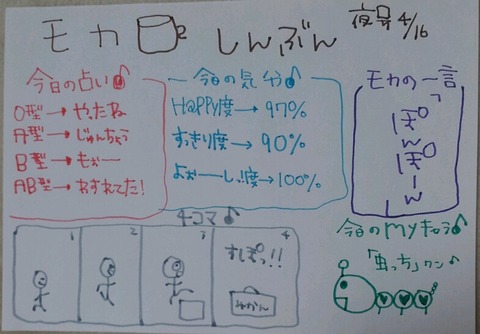 モカ しんぶん
夜号 4/16
今日の占い♪
O型→やったね
A型→じゅんちょう
B型→もぉー
AB型→わすれてた!
今日の気分♪
HAPPY度→970%
すっきり度→90%
よぉーしっ度→100%
モカの一言
「ぽんぽーん」
4コマ♪
1
2
3
4
すしぽっ!!
みかん
今日のmyキャラ♪
「虫っち」クン♪